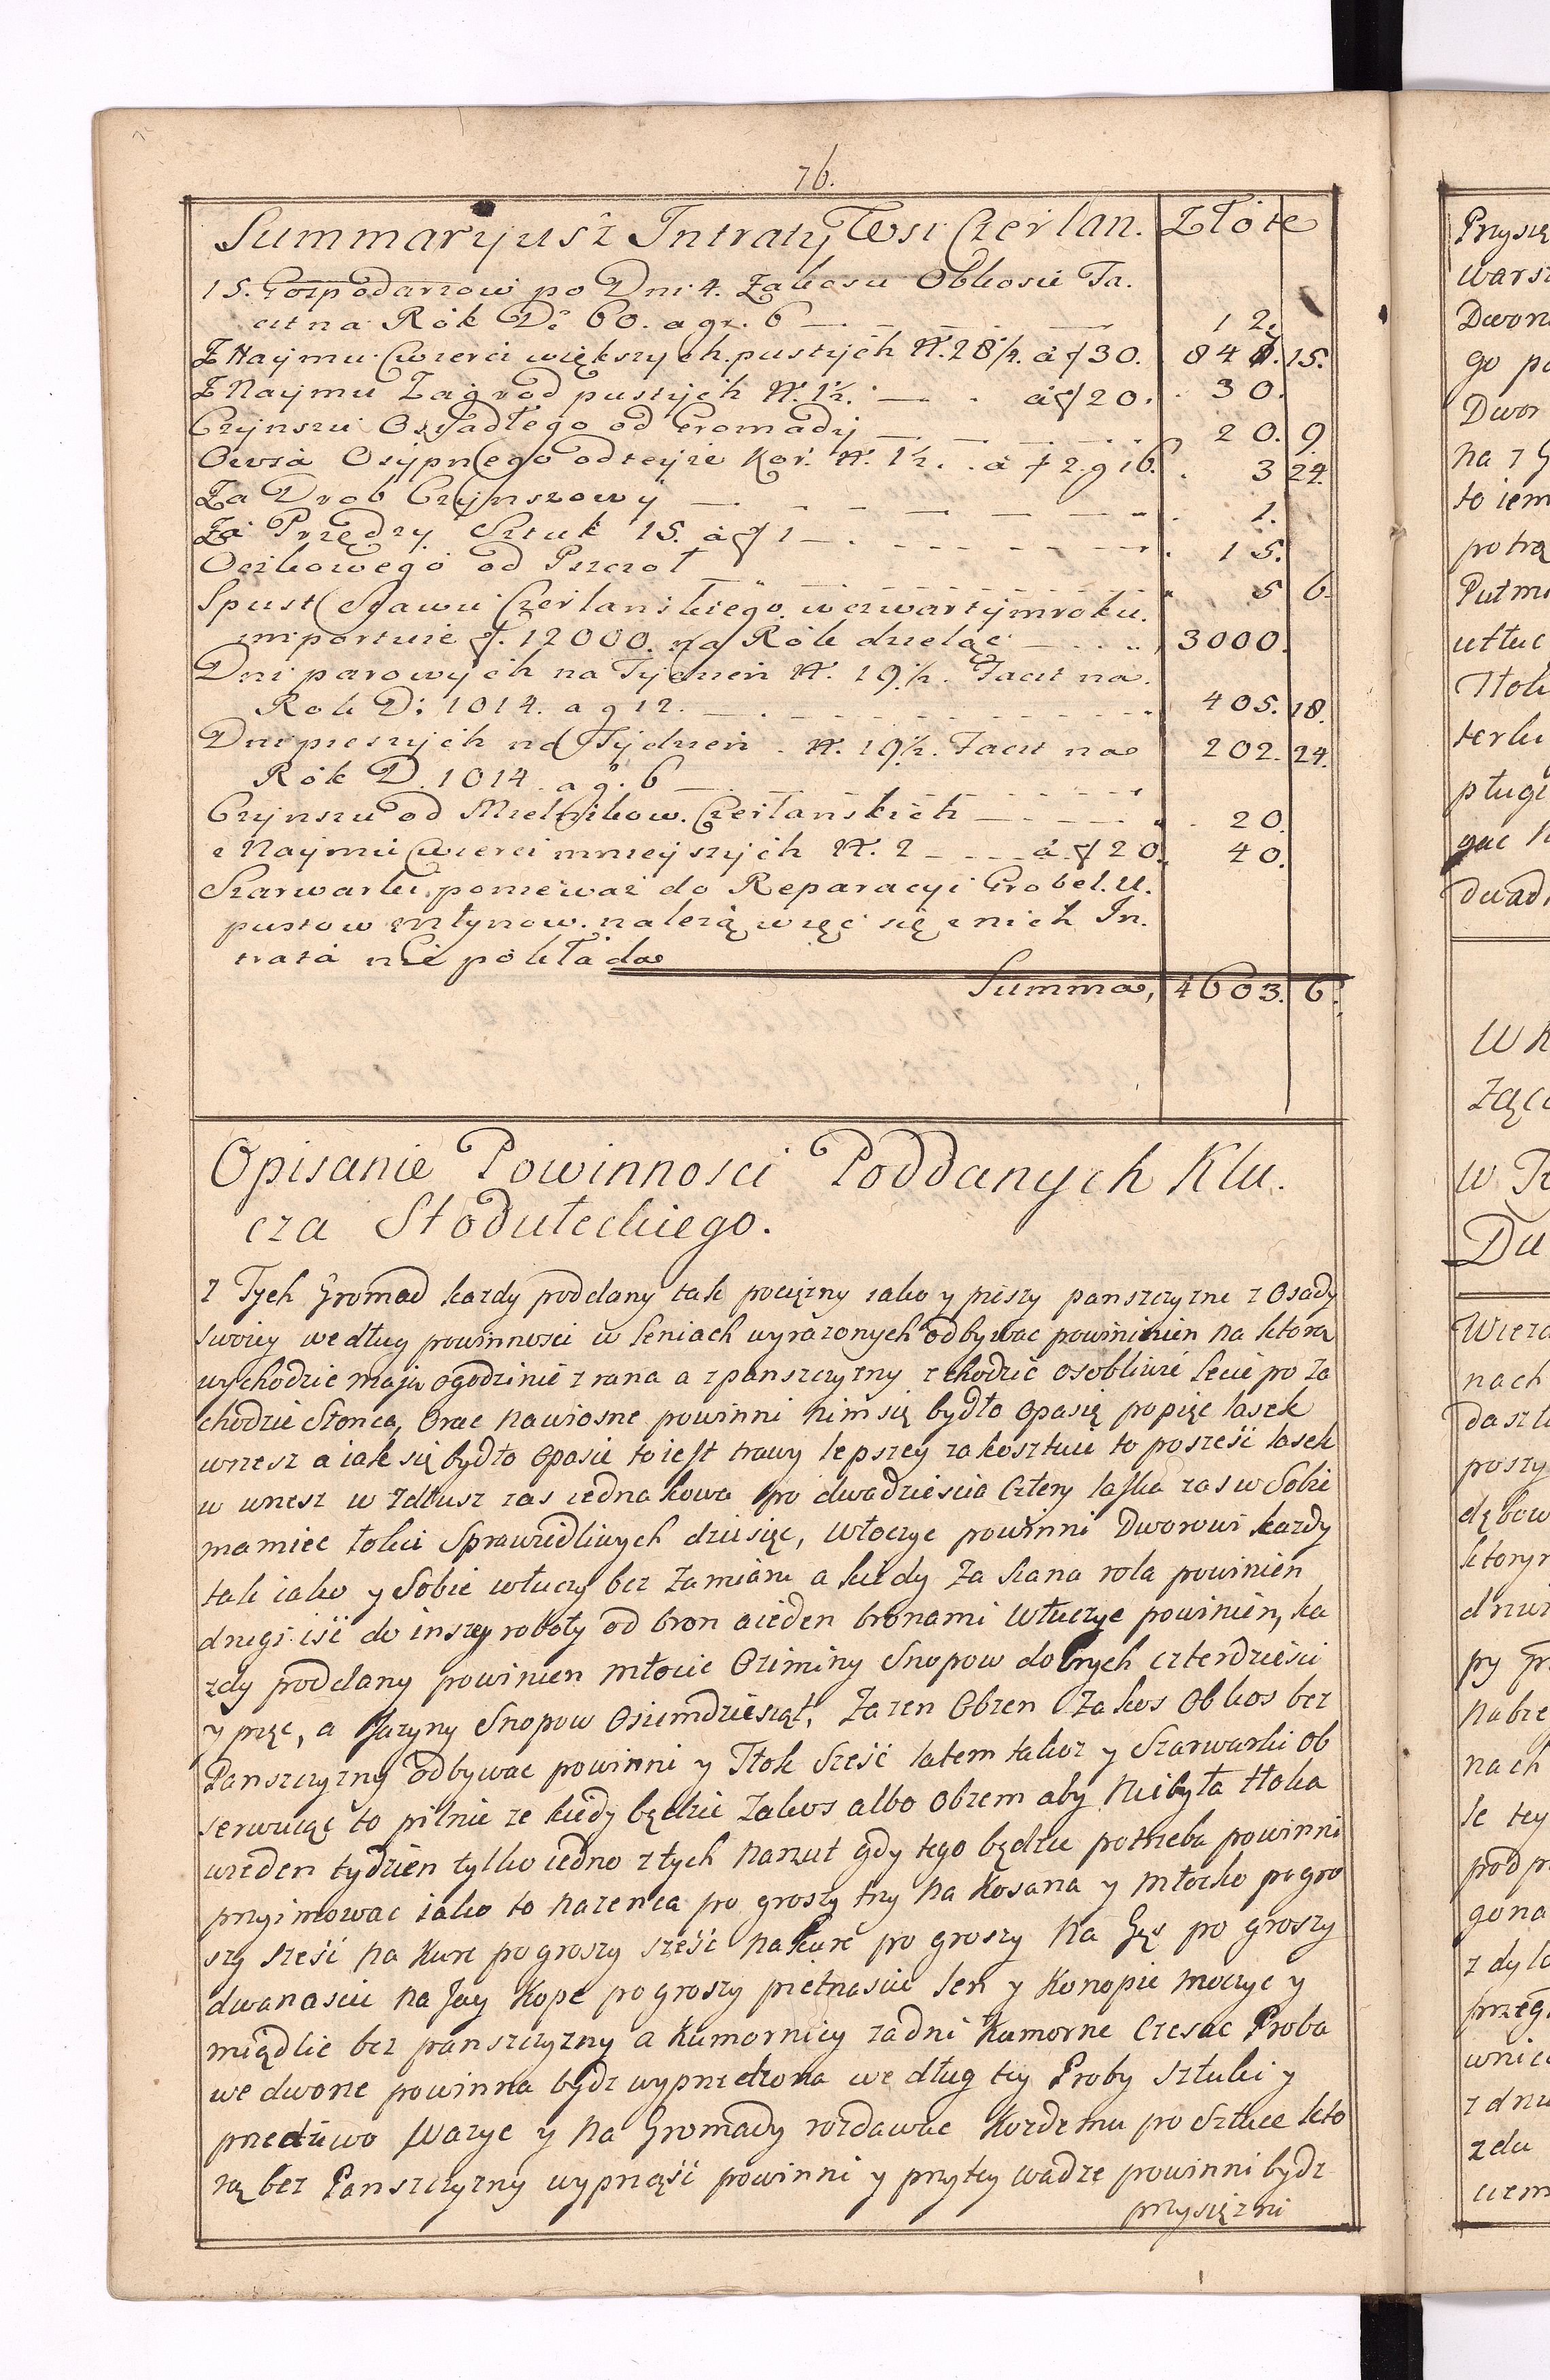 76.
Summaryusz Intraty Wsi Czerlan. Złote
15. Gospodarzow po Dni 4. Zakosu Obkosu Fa.
cit na Rok D: 60. a gr. 6 12.
Z Naymu Cwierci większych pustych N. 28½. á f 30. 847. 15.
Z Naymu Zagrod pustych N. 1½. á f 20. 30.
Czynszu Osiadłego od Gromady 20. 9
Owsa Osypnego od teyże Kor. N. 1½. á f 2. g 16. 3 24.
Za Drob Czynszowy 1.
Za Przędzy Sztuk 15. á f 1 15.
Oczkowego od Pszczoł 5 6.
Spust Stawu Czerlanskiego w czwartym roku.
importuie f. 12000. na Rok dzieląc 3000.
Dni parowych na Tydzień N. 19½. Facit na.
Rok D: 1014. a g 12. 405. 18.
Dni pieszych na Tydzień N. 19½. Facit na 202. 24.
Rok D. 1014 a g. 6
Czynszu od Mielnikow Czerlanskich 20.
z Naymu Cwierci mnieyszych N. 2 á f 20. 40.
Szarwarki poniewaz do Reparacyi Grobel. U.
pustow młynow. należą więc się z nich In.
trata nie pokłada
Summa, 4603. 6.
Opisanie Powinnosci Poddanych Klu.
cza Stoduleckiego.
Z Tych Gromad kazdy poddany tak pociężny iako y pieszy panszczyzne z Osady
swoiey według powinnosci w leniach wyrazonych odbywac powinien na ktorą
wychodzic maią ogodzinie z rana a z panszczyzny zchodzic osobliwie lecie po za
chodzie Słonca, Orac nawiosne powinni nim się bydło opasię popięc lasek
wszesz a iak się bydło opasie to iest trawy lepszey zakosztuie to poszesć lasek
w wszesz w zdłusz zas iednakowa po dwadziescia cztery laska zas w Sobie
ma miec łokci Sprawiedliwych dziesięc, włoczyc powinni Dworowi kazdy
tak iako y Sobie włuczy bez Zamiaru a kiedy Za rola powinien
drugi iść do inszey roboty od bron aieden bronami włuczyc powinien, ka
zdy poddany powinien młocic Oziminy Snopow dobrych czterdziesci
y pięc, a Jarzyny Snopow Osiemdziesiąt, Zazen Obzen Zakos Obkos bez
Panszczyzny odbywac powinni y Tłok Szesć latem takoz y Szarwarki Ob
serwuiąc to pilnie ze kiedy będzie Zakos albo Obzem aby niebyła tłoka
wieden tydzien tylko iedno z tych narzut gdy tego będzie potrzeba powinni
przyimowac iako to nazenca po groszy trzy na Kosarza y młocko pogro
szy szesć na Kure pogroszy szesć na kure po groszy na Gęs po groszy
dwanascie na Jay Kope po groszy pietnascie len y Konopie moczyc y
międlic bez panszczyzny a Kumornicy zadni Kumorne Czesac Proba
we dworze powinna bydz wyprzedzona według tey Proby sztuki y
przedziwo ważyc y na Gromady rozdawac Kozdemu po Sztuce kto
rą bez Panszczyzny wyprząść powinni y przytey wadze powinni bydz
przysiężni